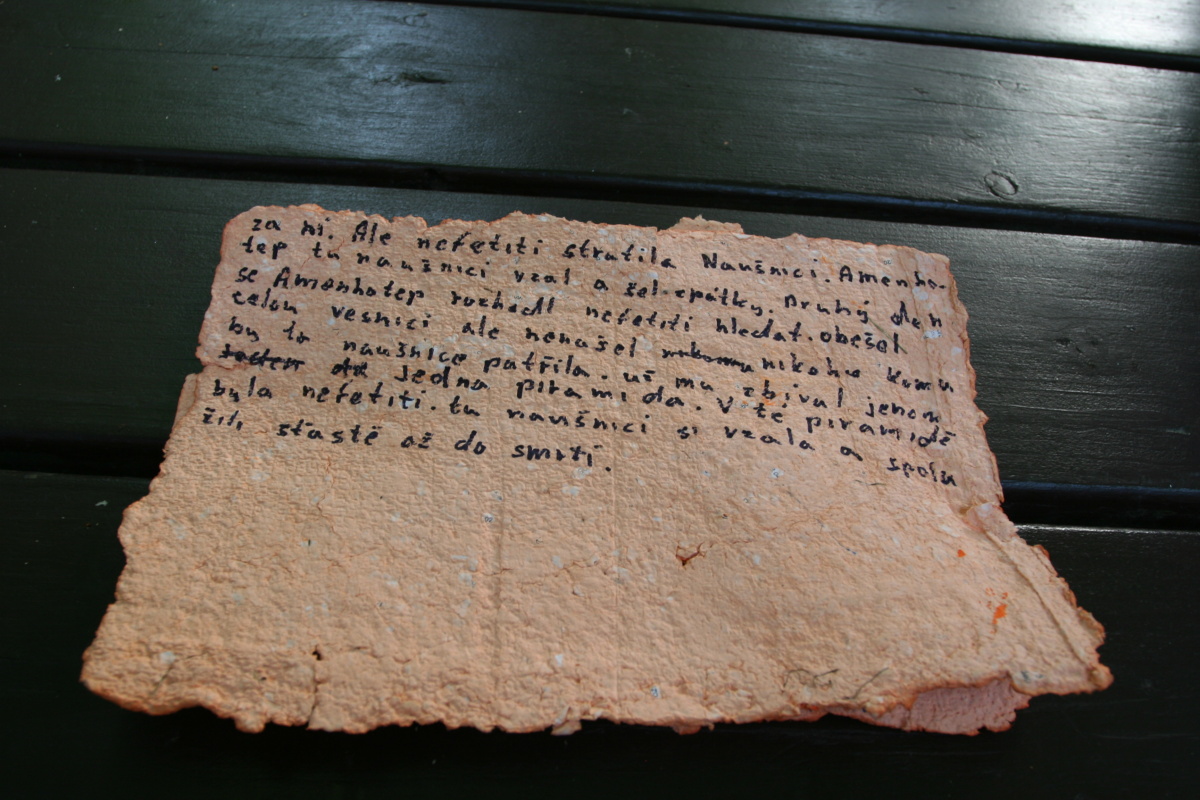 za ni. Ale nefetiti stratila Naušnici. Amenho-
tep tu naušnici vzal a šel zpátky. Druhý den
se Amenhotep rozhodl nefetiti hledat. obešel
celou vesnici ale nenašel nikoho komu
by ta naušnice patřila. uš mu zbíval jenom
jedna piramida. V té piramidě
byla nefetiti. tu naušnici si vzala a spolu
žili stastě až do smrti.